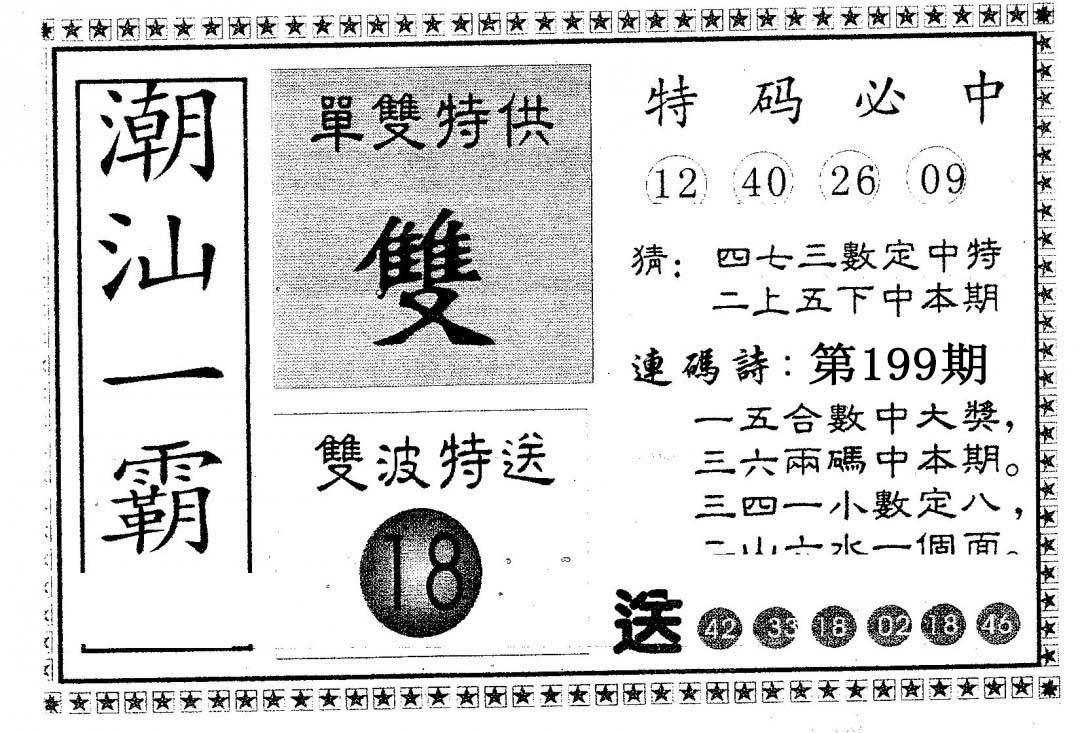 潮汕一霸
單雙特供
雙
雙波特送
18
特码必中
12 40 26 09
猜：四七三數定中特
二上五下中本期
連碼詩：第199期
一五合數中大獎，
三六兩碼中本期。
三四一小數定八，
二山六水一個面。
送 42 33 18 02 18 46